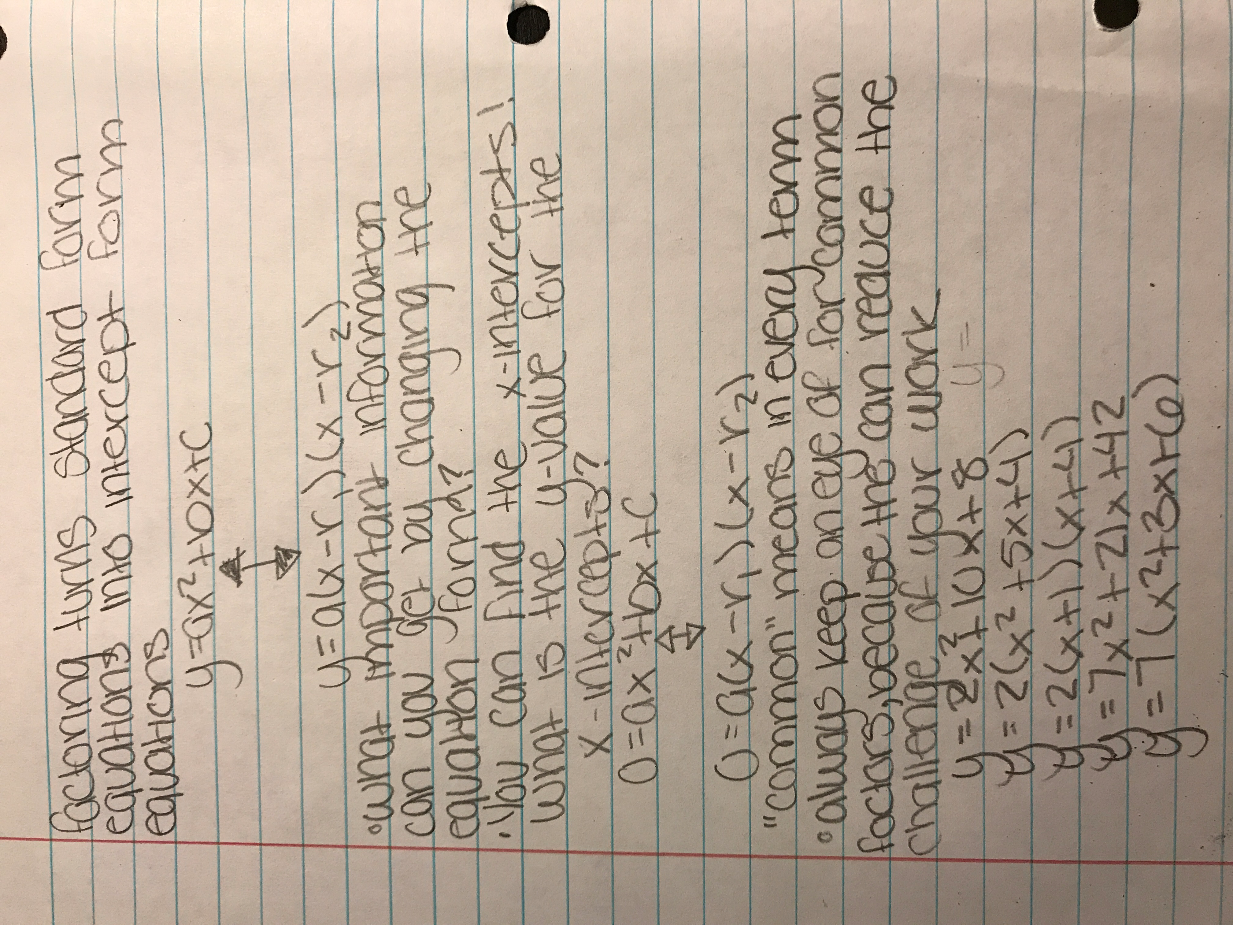 factoring turns standard form
equations into intercept form
equations
y=ax²+bx+c
y=a(x-r₁)(x-r₂)
•what important information
can you get by changing the
equation form?
•You can find the x-intercepts!
what is the y-value for the
x-intercepts?
0=ax²+bx+c
0=a(x-r₁)(x-r₂)
"common" means in every term
•always keep an eye of for common
factors, because they can reduce the
challenge of your work
y=2x²+10x+8 y=
y=2(x²+5x+4)
y=2(x+1)(x+4)
y=7x²+21x+42
y=7(x²+3x+6)